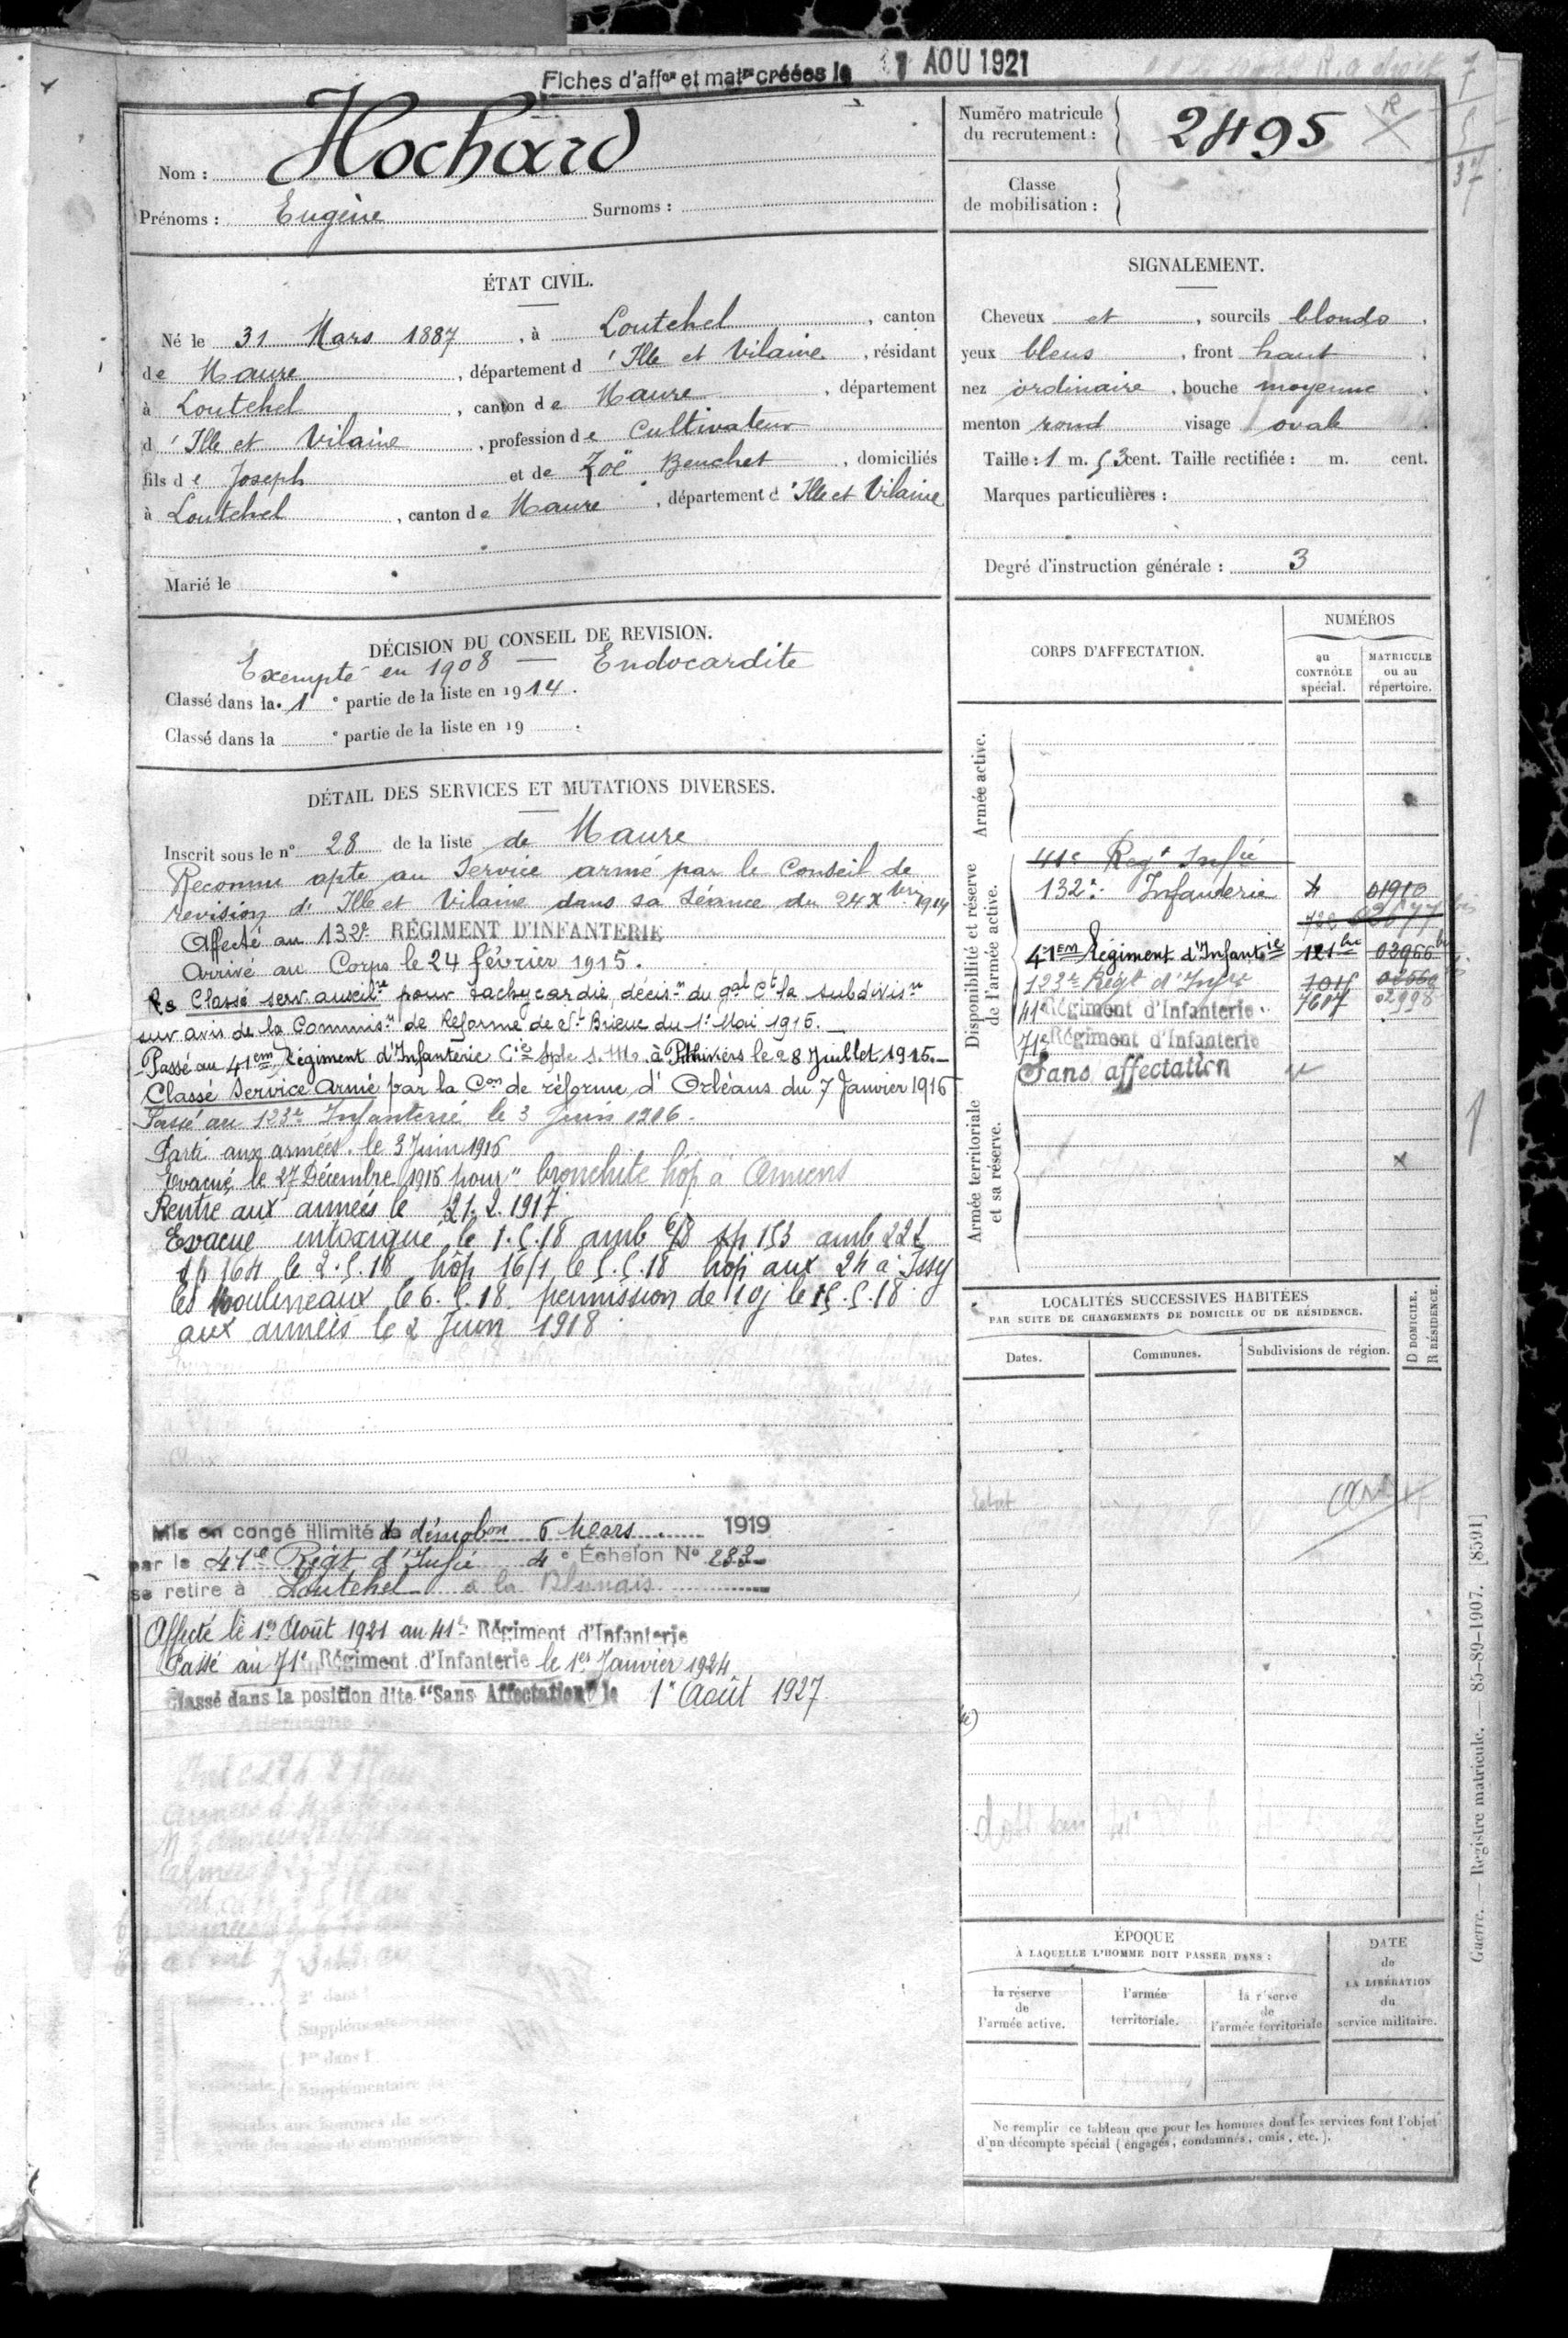 Fiches d'aff.on et mat.es créées le 1 AOU 1921
Nom : Hochard
Prénoms : Eugène Surnoms :
Numéro matricule
du recrutement : 2495
R
Classe
de mobilisation :
ÉTAT CIVIL.
Né le 31 Mars 1887, à Loutehel, canton
de Maure, département d'Ille et Vilaine, résidant
à Loutehel, canton de Maure, département
d'Ille et Vilaine, profession de Cultivateur
fils de Joseph et de Zoë Beuchet, domiciliés
à Loutehel, canton de Maure, département d'Ille et Vilaine
Marié le
SIGNALEMENT.
Cheveux et, sourcils blonds,
yeux bleus, front haut,
nez ordinaire, bouche moyenne,
menton rond visage ovale.
Taille : 1 m. 53 cent. Taille rectifiée : m. cent.
Marques particulières :
Degré d'instruction générale : 3
DÉCISION DU CONSEIL DE REVISION.
Exempté en 1908 — Endocardite
Classé dans la 1e partie de la liste en 1914.
Classé dans la e partie de la liste en 19 .
DÉTAIL DES SERVICES ET MUTATIONS DIVERSES.
Inscrit sous le n° 28 de la liste de Maure
Reconnu apte au Service armé par le Conseil de
revision d'Ille et Vilaine dans sa séance du 24 Xbre 1914
Affecté au 132e RÉGIMENT D'INFANTERIE
Arrivé au Corps le 24 février 1915.
Classé serv. auxil.re pour tachycardie, décis.n du gal Ct la subdivis.n
sur avis de la Commis.n de Réforme de St Brieuc du 1er Mai 1915.
Passé au 41em Régiment d'Infanterie Cie Sple S. M. à Pithiviers le 28 Juillet 1915.
Classé Service Armé par la Con de réforme d'Orléans du 7 Janvier 1916
Passé au 123e Infanterie le 3 Juin 1916.
Parti aux armées le 3 Juin 1916
Evacué le 27 Décembre 1916 pour "bronchite hop à Amiens
Rentré aux armées le 21.2.1917
Evacué intoxiqué le 1.5.18 amb 6/8 sp 153 amb 222
sp 164 le 2.5.18 hôp 16/1 le 5.5.18 hop aux 24 à Issy
les Moulineaux le 6.5.18 permission de 10j le 15.5.18
aux armées le 2 Juin 1918
Mis en congé illimité de démobon 6 Mars 1919
par le 41e Régt d'Infie 4e Échelon N° 233
se retire à Loutehel à la Blunais
Affecté le 1er Août 1921 au 41e Régiment d'Infanterie
Passé au 71e Régiment d'Infanterie le 1er Janvier 1924
Classé dans la position dite "Sans Affectation" le 1er Août 1927
CORPS D'AFFECTATION.
NUMÉROS
au
CONTRÔLE
spécial.
MATRICULE
ou au
répertoire.
Armée active.
Disponibilité et réserve
de l'armée active.
41e Regt Infie
132e Infanterie 01910
41em Régiment d'Infantie 121 bis 02966 bis
123e Régt d'Infie 1015
41e Régiment d'Infanterie 7617 02998
71e Régiment d'Infanterie
Sans affectation
Armée territoriale
et sa réserve.
LOCALITÉS SUCCESSIVES HABITÉES
PAR SUITE DE CHANGEMENTS DE DOMICILE OU DE RÉSIDENCE.
Dates.
Communes.
Subdivisions de région.
D DOMICILE.
R RÉSIDENCE.
ÉPOQUE
À LAQUELLE L'HOMME DOIT PASSER DANS :
la réserve
de
l'armée active.
l'armée
territoriale.
la réserve
de
l'armée territoriale
DATE
de
LA LIBÉRATION
du
service militaire.
Ne remplir ce tableau que pour les hommes dont les services font l'objet
d'un décompte spécial (engagés, condamnés, omis, etc.).
Guerre. — Registre matricule. — 85-89-1907. [8591]